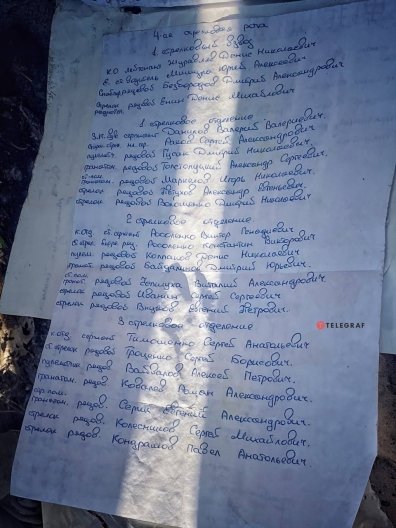 4-ая стрелковая рота
1 стрелковый взвод
К.О лейтенант Журавлев Денис Николаевич.
Юрий Алексеевич
рядовой Безбородов Дмитрий Александрович
стрелок рядовой Денис Михайлович
1 стрелковое отделение
З.К.ВВ сержант Данилов Валерий Валериевич.
Раков Сергей Александрович.
рядовой Гусак Дмитрий Николаевич.
гранатом. рядовой Толстолуцкий Александр Сергеевич.
гранатом. рядовой Маркатов Игорь Николаевич.
стрелок рядовой Александр Евгеньевич.
стрелок рядовой Дмитрий Николаевич
2 стрелковое отделение
к отд. ст. сержант Росоленко Виктор Геннадиевич
Росоленко Константин Викторович
рядовой Колпашов Денис Николаевич
рядовой Дмитрий Юрьевич.
рядовой Виталий Александрович.
стрелок рядовой Иванин Сергей Сергеевич
стрелок рядовой Внуков Евгений Петрович.
3 стрелковое отделение
TELEGRAF
к отд. сержант Тимошенко Сергей Анатольевич
ст стрелок рядовой Троценко Сергей Борисович.
пулеметчик рядовой Вайваров Алексей Петрович.
гранатом. рядов. Ковалев Роман Александрович.
пом.
гранатом. рядов. Серик Евгений Александрович.
стрелок рядов. Колесников Сергей Михайлович.
стрелок рядов. Кондрашов Павел Анатольевич.